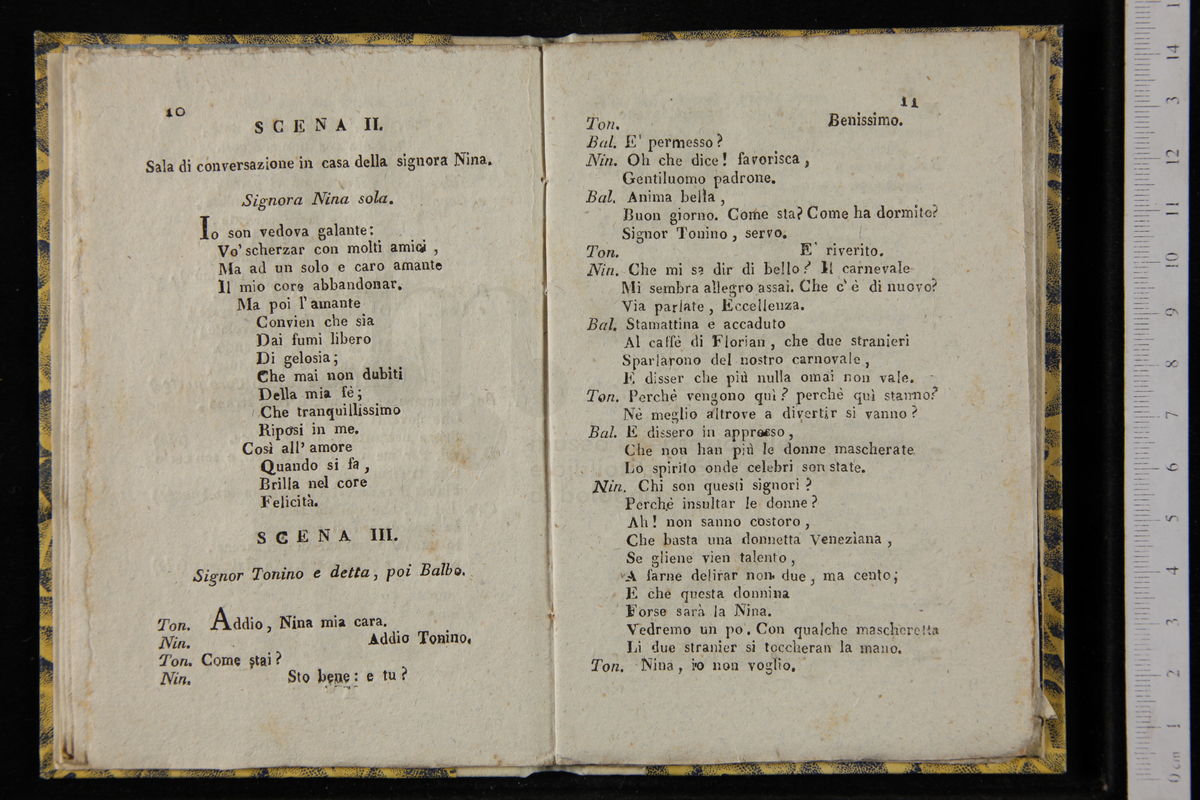 10
SCENA II.
Sala di conversazione in casa della signora Nina.
Signora Nina sola.
Io son vedova galante:
Vo' scherzar con molti amici,
Ma ad un solo e caro amante
Il mio core abbandonar.
Ma poi l'amante
Convien che sia
Dai fumi libero
Di gelosia;
Che mai non dubiti
Della mia fè;
Che tranquillissimo
Riposi in me.
Così all' amore
Quando si fa,
Brilla nel core
Felicità.
SCENA III.
Signor Tonino e detta, poi Balbo.
Ton. Addio, Nina mia cara.
Nin. Addio Tonino.
Ton. Come stai?
Nin. Sto bene: e tu?
11
Ton. Benissimo.
Bal. E' permesso?
Nin. Oh che dice! favorisca,
Gentiluomo padrone.
Bal. Anima bella,
Buon giorno. Come sta? Come ha dormito?
Signor Tonino, servo.
Ton. E' riverito.
Nin. Che mi sa dir di bello? Il carnevale
Mi sembra allegro assai. Che c'è di nuovo?
Via parlate, Eccellenza.
Bal. Stamattina e accaduto
Al caffè di Florian, che due stranieri
Sparlarono del nostro carnovale,
E disser che più nulla omai non vale.
Ton. Perchè vengono quì? perchè quì stanno?
Nè meglio altrove a divertir si vanno?
Bal. E dissero in appresso,
Che non han più le donne mascherate
Lo spirito onde celebri son state.
Nin. Chi son questi signori?
Perchè insultar le donne?
Ah! non sanno costoro,
Che basta una donnetta Veneziana,
Se gliene vien talento,
A farne delirar non due, ma cento;
E che questa donnina
Forse sarà la Nina.
Vedremo un po. Con qualche mascheretta
Li due stranier si toccheran la mano.
Ton. Nina, io non voglio.
0 cm 1 2 3 4 5 6 7 8 9 10 11 12 3 14